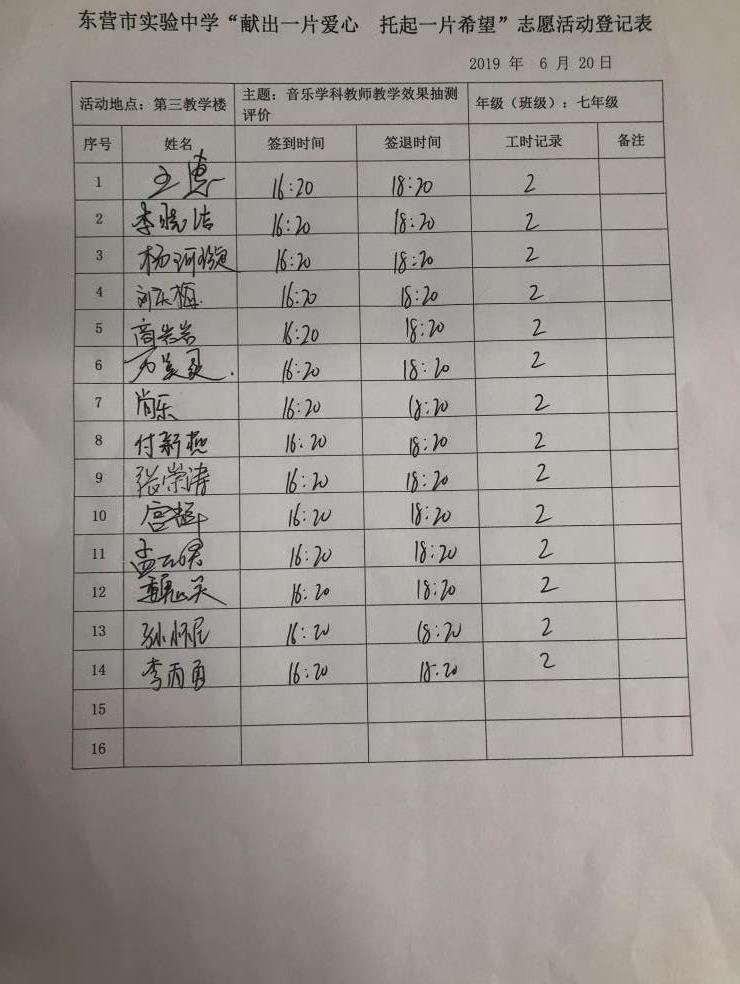 东营市实验中学“献出一片爱心 托起一片希望”志愿活动登记表
2019 年 6 月 20日
活动地点：第三教学楼 主题：音乐学科教师教学效果抽测评价 年级（班级）：七年级
序号 姓名 签到时间 签退时间 工时记录 备注
1 16:20 18:20 2
2 李晓洁 16:20 18:20 2
3 16:20 18:20 2
4 刘东梅 16:20 18:20 2
5 商岩岩 16:20 18:20 2
6 16:20 18:20 2
7 尚乐 16:20 18:20 2
8 付新燕 16:20 18:20 2
9 张荣涛 16:20 18:20 2
10 16:20 18:20 2
11 16:20 18:20 2
12 16:20 18:20 2
13 16:20 18:20 2
14 李丙勇 16:20 18:20 2
15
16